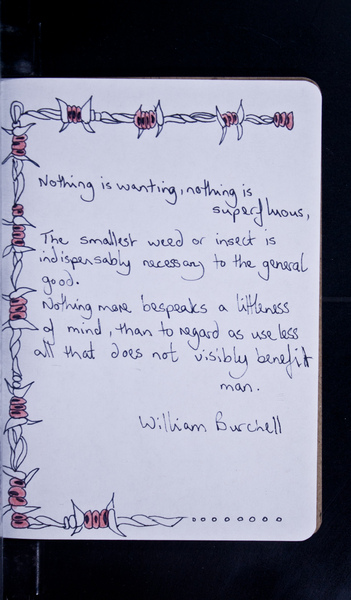 Nothing is wanting, nothing is
superfluous,
The smallest weed or insect is
indispensably necessary to the general
good.
Nothing more bespeaks a littleness
of mind, than to regard as useless
all that does not visibly benefit
man.
William Burchell